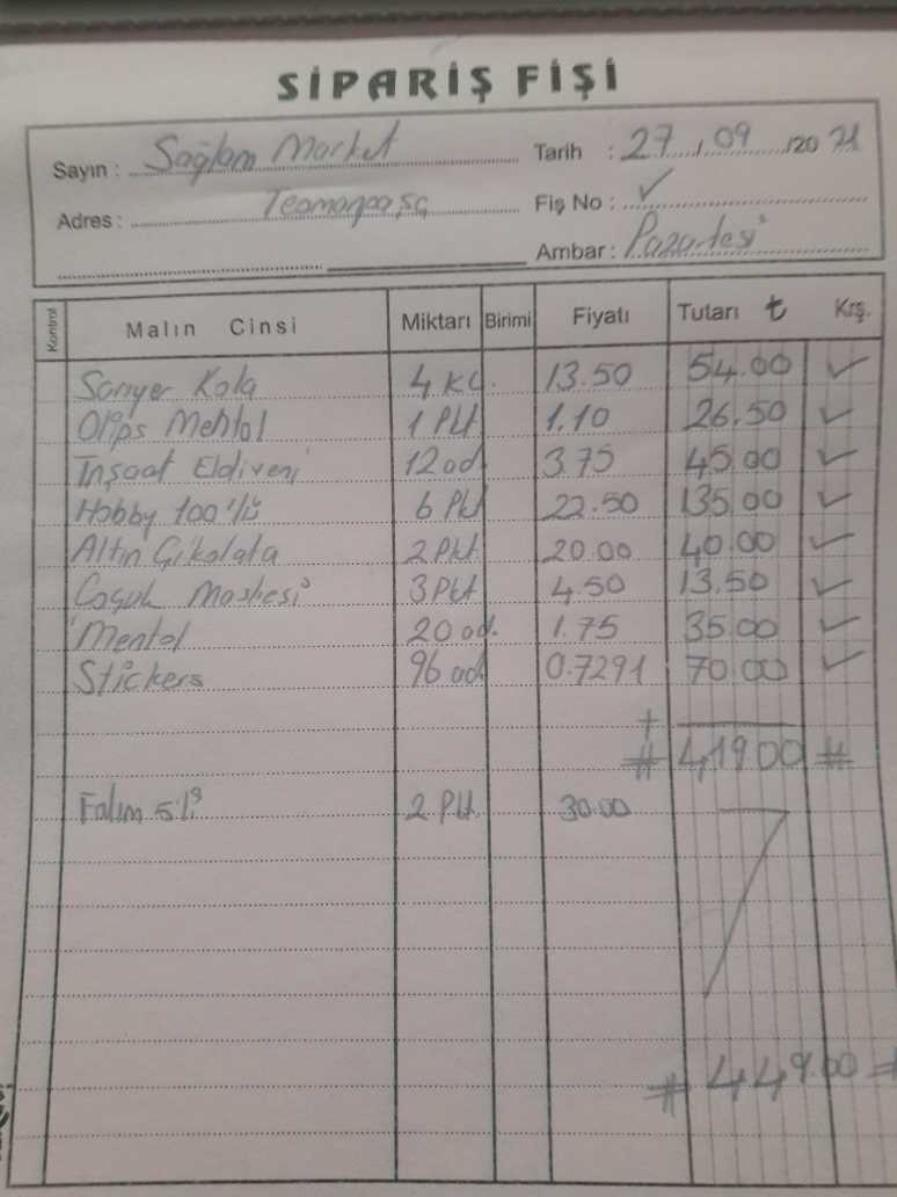 SİPARİŞ FİŞİ
Sayın : Sağlam Market Tarih : 27 / 09 /20 21
Adres : Teomanpaşa Fiş No : ✓
Ambar : Pazartesi
Kontrol Malın Cinsi Miktarı Birimi Fiyatı Tutarı ₺ Krş.
Sarıyer Kola 4 KL. 13.50 54.00 ✓
Olips Mentol 1 Pkt 1.10 26.50 ✓
İnşaat Eldiveni 12 ad. 3.75 45.00 ✓
Hobby 100'lü 6 Pkt 22.50 135.00 ✓
Altın Çikolata 2 Pkt. 20.00 40.00 ✓
Coçuk Maskesi 3 Pkt 4.50 13.50 ✓
Mentol 20 ad. 1.75 35.00 ✓
Stickers 96 ad. 0.7291 70.00 ✓
+
# 419.00 #
Falım 5'li 2 Pkt. 30.00
# 449.00 #